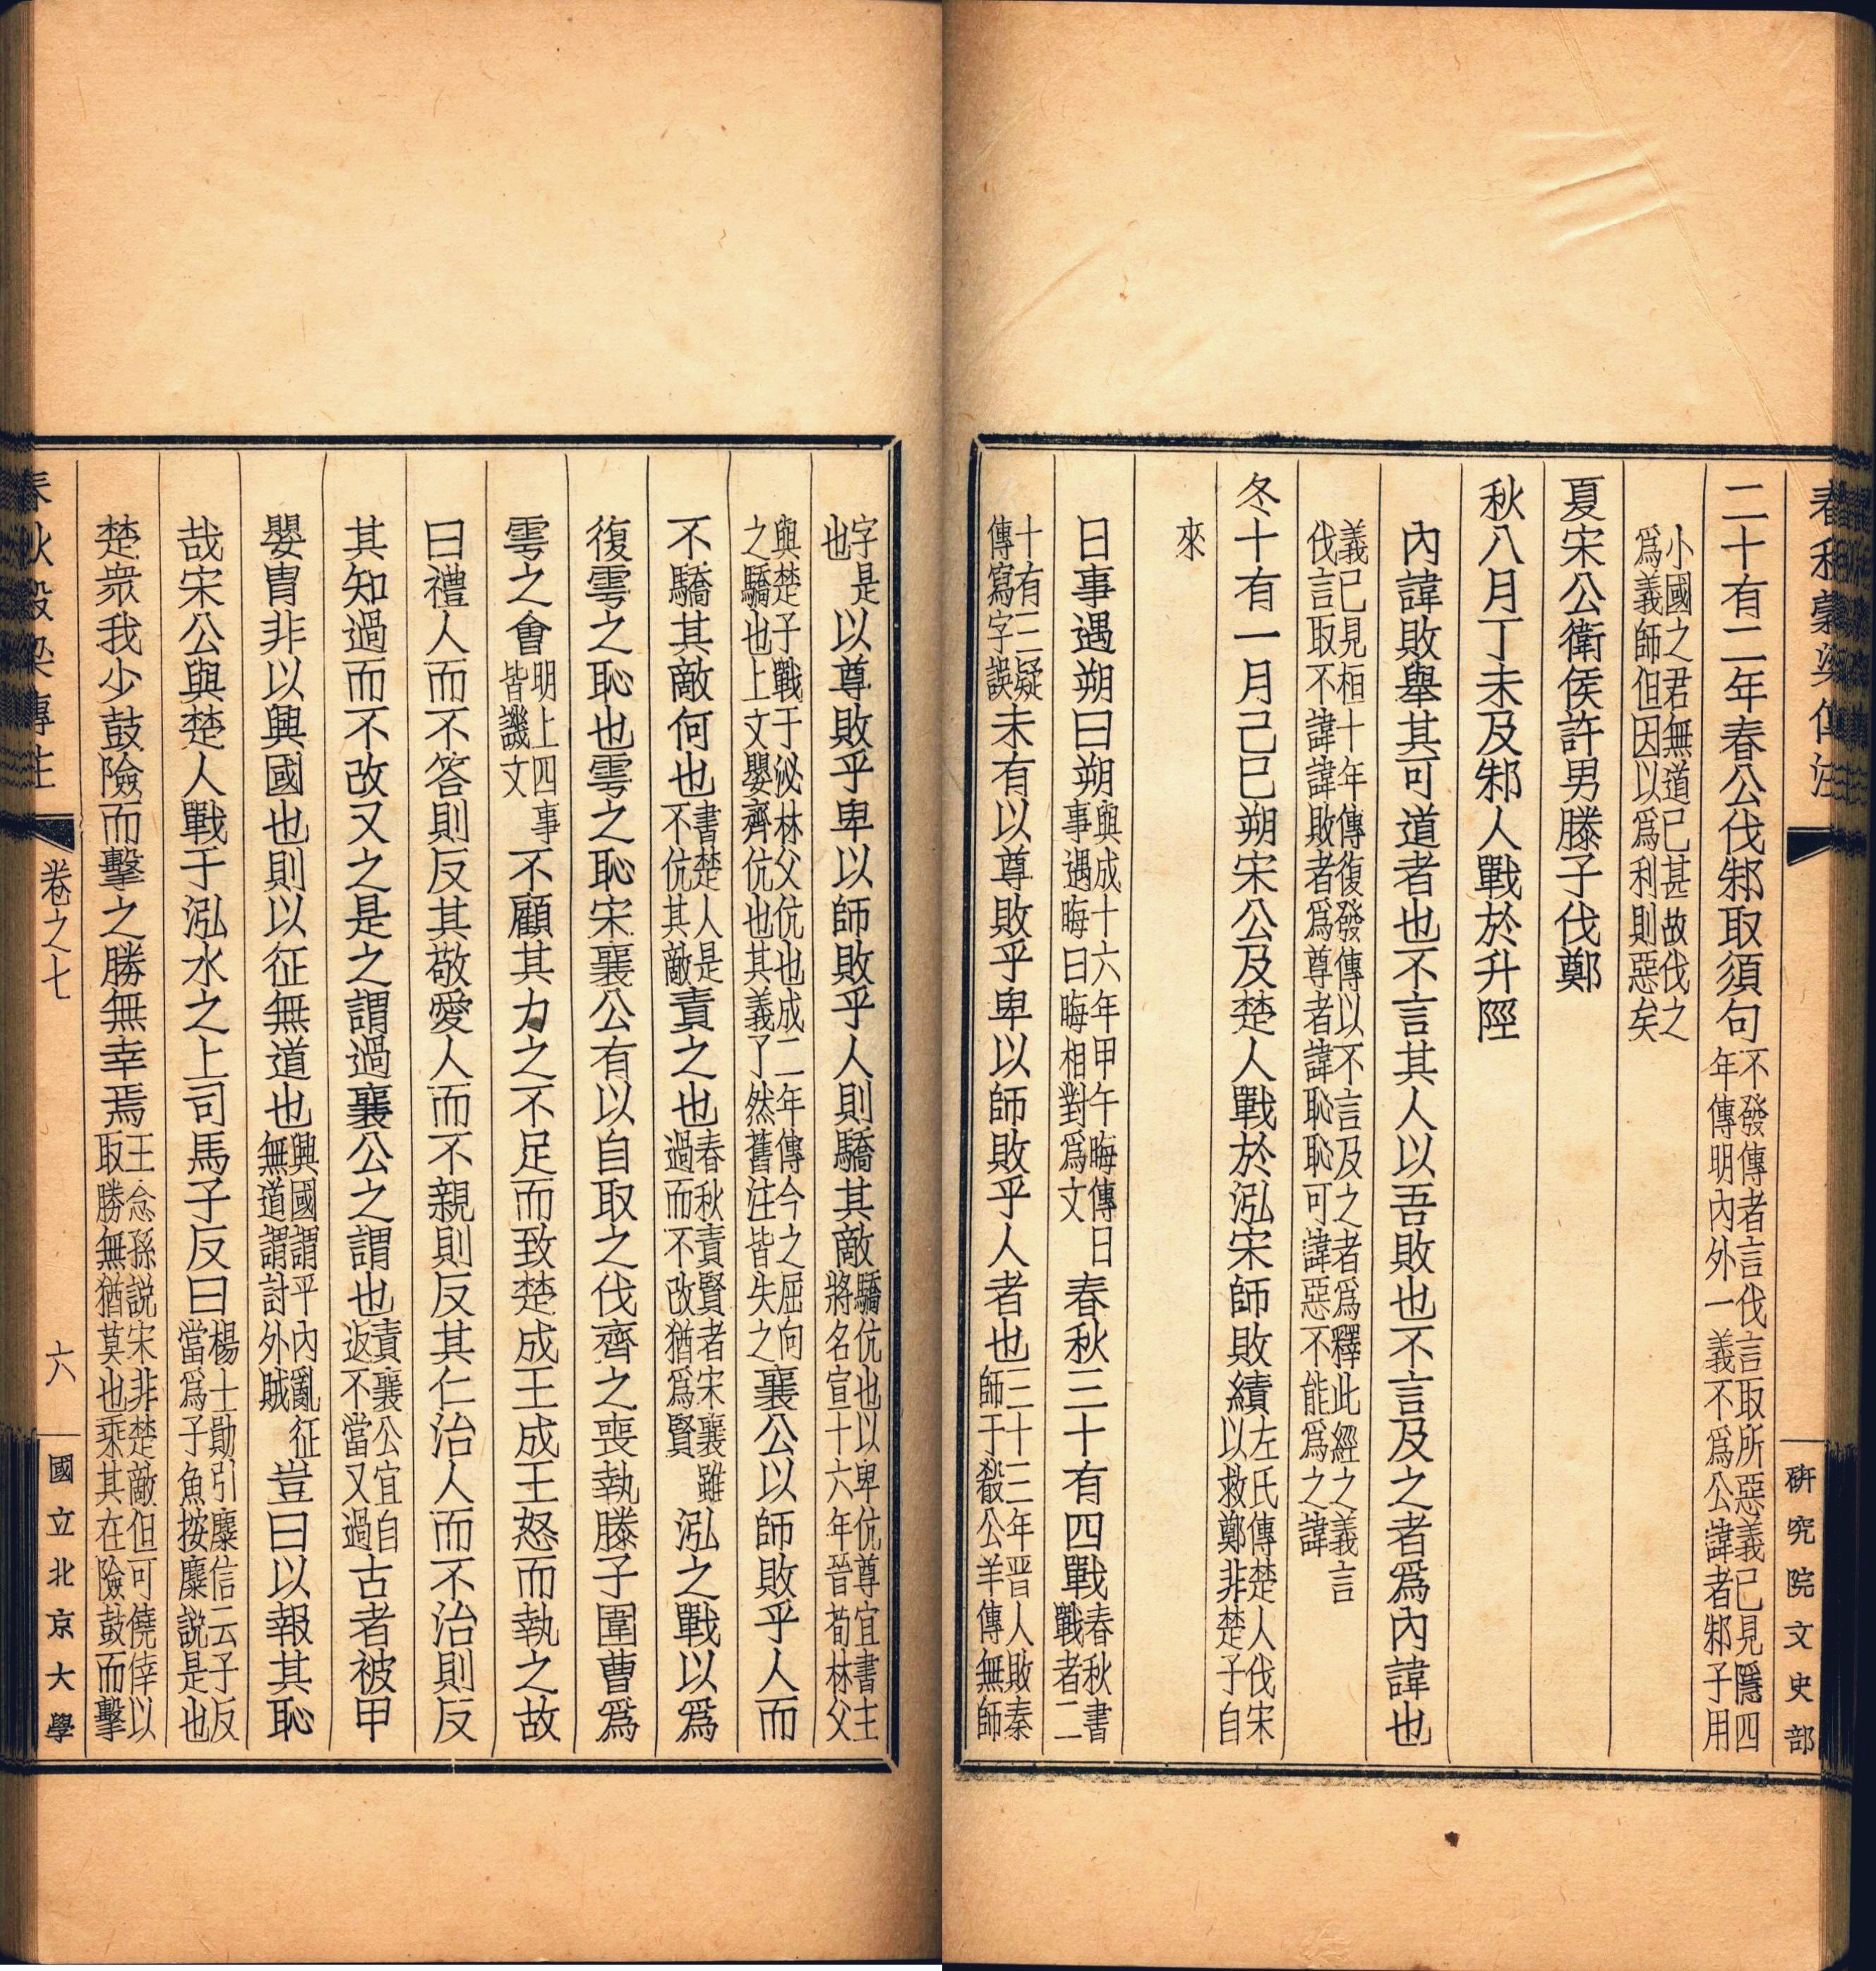 春秋穀梁傳注
研究院文史部
二十有二年春公伐邾取須句不發傳者言伐言取所惡義已見隱四年傳明內外一義不爲公諱者邾子用
小國之君無道已甚故伐之爲義師但因以爲利則惡矣
夏宋公衛侯許男滕子伐鄭
秋八月丁未及邾人戰於升陘
內諱敗舉其可道者也不言其人以吾敗也不言及之者爲內諱也
義已見桓十年傳復發傳以不言及之者爲釋此經之義言伐言取不諱諱敗者爲尊者諱恥恥可諱惡不能爲之諱
冬十有一月己巳朔宋公及楚人戰於泓宋師敗績左氏傳楚人伐宋以救鄭非楚子自
來
日事遇朔曰朔與成十六年甲午晦傳日事遇晦曰晦相對爲文春秋三十有四戰春秋書戰者二
十有三疑傳寫字誤未有以尊敗乎卑以師敗乎人者也三十三年晋人敗秦師于殽公羊傳無師
字是也以尊敗乎卑以師敗乎人則驕其敵驕伉也以卑伉尊宜書主將名宣十六年晉荀林父
與楚子戰于泌林父伉也成二年傳今之屈向之驕也上文嬰齊伉也其義了然舊注皆失之襄公以師敗乎人而
不驕其敵何也書楚人是不伉其敵責之也春秋責賢者宋襄雖過而不改猶爲賢泓之戰以爲
復雩之恥也雩之恥宋襄公有以自取之伐齊之喪執滕子圍曹爲
雩之會明上四事皆譏文不顧其力之不足而致楚成王成王怒而執之故
曰禮人而不答則反其敬愛人而不親則反其仁治人而不治則反
其知過而不改又之是之謂過襄公之謂也責襄公宜自返不當又過古者被甲
嬰冑非以興國也則以征無道也興國謂平內亂征無道謂討外賊豈曰以報其恥
哉宋公與楚人戰于泓水之上司馬子反曰楊士勛引麋信云子反當爲子魚按麋說是也
楚衆我少鼓險而擊之勝無幸焉王念孫説宋非楚敵但可僥倖以取勝無猶莫也乘其在險鼓而擊
春秋穀梁傳注
卷之七
六
國立北京大學